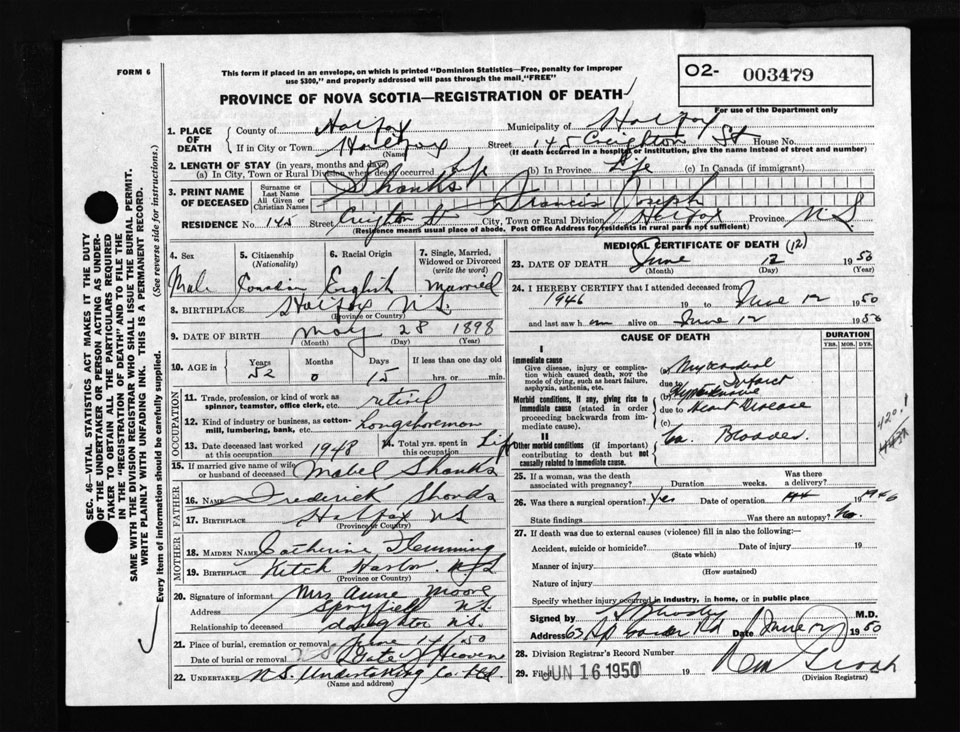 FORM 6
This form if placed in an envelope, on which is printed "Dominion Statistics—Free, penalty for improper
use $300," and properly addressed will pass through the mail "FREE"
O2- 003479
For use of the Department only
PROVINCE OF NOVA SCOTIA—REGISTRATION OF DEATH
1. PLACE OF DEATH
County of Halifax Municipality of Halifax
If in City or Town Halifax (Name) Street 145 Creighton St House No.
(If death occurred in a hospital or institution, give the name instead of street and number)
2. LENGTH OF STAY (in years, months and days)
(a) In City, Town or Rural Division where death occurred Life (b) In Province Life (c) In Canada (if immigrant)
3. PRINT NAME OF DECEASED
Surname or Last Name Shanks
All Given or Christian Names Francis Joseph
RESIDENCE No. 145 Street Creighton St City, Town or Rural Division Halifax Province N S
(Residence means usual place of abode. Post Office Address for residents in rural parts not sufficient)
4. Sex Male
5. Citizenship (Nationality)
6. Racial Origin English
7. Single, Married, Widowed or Divorced (write the word) Married
8. BIRTHPLACE Halifax N.S. (Province or Country)
9. DATE OF BIRTH May 28 1898
(Month) (Day) (Year)
10. AGE Years 52 Months 0 Days 15 If less than one day old hrs. or min.
OCCUPATION
11. Trade, profession, or kind of work as spinner, teamster, office clerk, etc. retired
12. Kind of industry or business, as cotton-mill, lumbering, bank, etc. Longshoreman
13. Date deceased last worked at this occupation 1948
14. Total yrs. spent in this occupation Life
15. If married give name of wife or husband of deceased Mabel Shanks
FATHER
16. NAME Frederick Shanks
17. BIRTHPLACE Halifax NS (Province or Country)
MOTHER
18. MAIDEN NAME Catherine Flemming
19. BIRTHPLACE Ketch Harbor NS
(Province or Country)
20. Signature of informant Mrs Anne Moore
Address Spryfield NS.
Relationship to deceased daughter NS.
21. Place of burial, cremation or removal
Date of burial or removal June 14/50 Gate of Heaven
22. UNDERTAKER N.S. Undertaking Co. Ltd.
(Name and address)
MEDICAL CERTIFICATE OF DEATH (12)
23. DATE OF DEATH June 12 1950
(Month) (Day) (Year)
24. I HEREBY CERTIFY that I attended deceased from
1946 19 to June 12 1950
and last saw him alive on June 12 1950
CAUSE OF DEATH
DURATION
YRS. MOS. DYS.
I
Immediate cause
Give disease, injury or complication which caused death, NOT the mode of dying, such as heart failure, asphyxia, asthenia, etc.
(a) Myocardial Infarct
due to
(b) Hypertensive
Morbid conditions, if any, giving rise to immediate cause (stated in order proceeding backwards from immediate cause).
due to Heart Disease
(c)
420.1
II
Other morbid conditions (if important) contributing to death but not causally related to immediate cause.
Ca. Bladder.
25. If a woman, was the death associated with pregnancy? Duration weeks. Was there a delivery?
26. Was there a surgical operation? Yes Date of operation 1946
State findings Was there an autopsy? No.
27. If death was due to external causes (violence) fill in also the following:
Accident, suicide or homicide? Date of injury 19
(State which)
Manner of injury
(How sustained)
Nature of injury
Specify whether injury occurred in industry, in home, or in public place
Signed by M.D.
Address 63 Rd Date June 1950
28. Division Registrar's Record Number
29. Filed JUN 16 1950 19
(Division Registrar)
SEC. 46—VITAL STATISTICS ACT MAKES IT THE DUTY
OF THE UNDERTAKER OR PERSON ACTING AS UNDER-
TAKER TO OBTAIN ALL THE PARTICULARS REQUIRED
IN THE "REGISTRATION OF DEATH" AND TO FILE THE
SAME WITH THE DIVISION REGISTRAR WHO SHALL ISSUE THE BURIAL PERMIT.
WRITE PLAINLY WITH UNFADING INK. THIS IS A PERMANENT RECORD.
Every item of information should be carefully supplied. (See reverse side for instructions.)